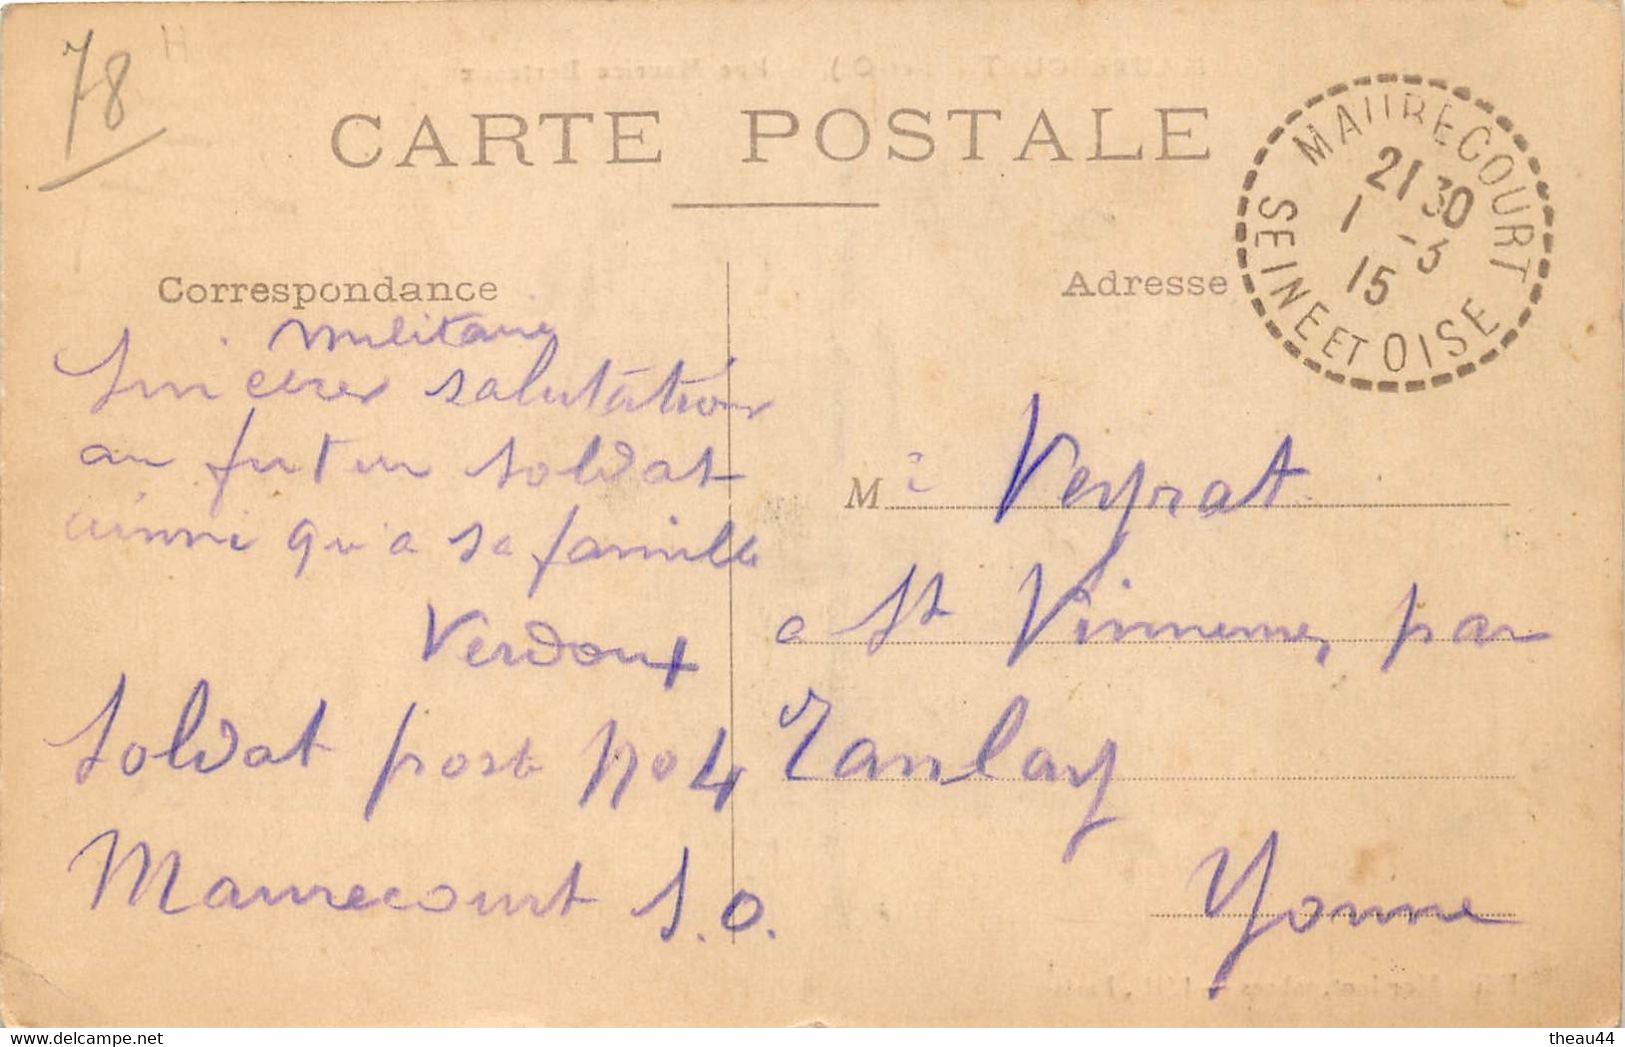 78
H
CARTE POSTALE
MAURECOURT
21 30
1 -3
15
SEINE ET OISE
Correspondance
militaire
Adresse
Sincères salutation
au futur soldat
ainsi qu'a sa famille
Verdoux
Soldat poste No 4
Maurecourt S.O.
M Veyrat
a St Vinnemer, par
Tanlay
Yonne
theau44